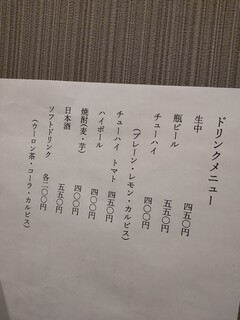 ドリンクメニュー
生中 四五〇円
瓶ビール 五五〇円
チューハイ 四〇〇円
(プレーン・レモン・カルピス)
チューハイ トマト 四五〇円
ハイボール 四〇〇円
焼酎(麦・芋) 四〇〇円
日本酒 五五〇円
ソフトドリンク 各二〇〇円
(ウーロン茶・コーラ・カルピス)